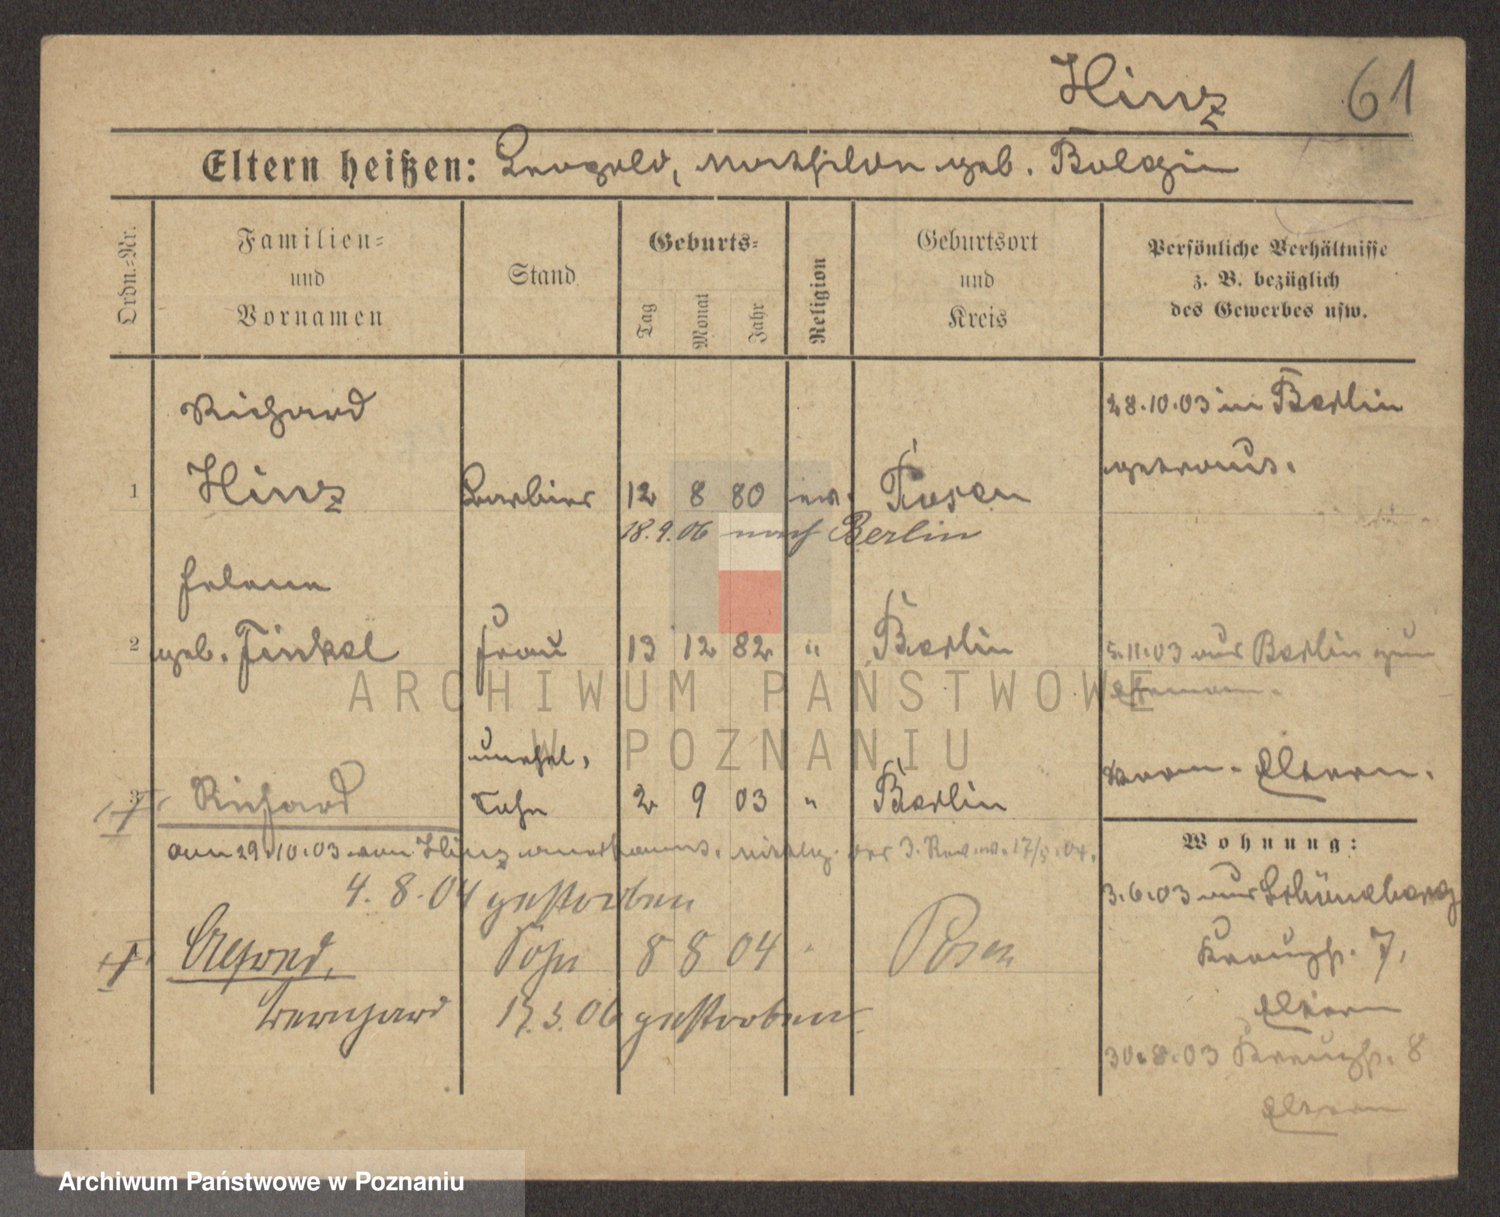 Hinz 61
Eltern heißen: Leopold, Mathilde geb.
Ordn.-Nr.
Familien-
und
Vornamen
Stand
Geburts-
Tag
Monat
Jahr
Religion
Geburtsort
und
Kreis
Persönliche Verhältnisse
z. B. bezüglich
des Gewerbes usw.
Richard
28.10.03 in Berlin
getraut.
1 Hinz Barbier 12 8 80 ev. Posen
18.9.06 nach Berlin
Helene
2 geb. Finkel Frau 13 12 82 " Berlin
5.11.03 aus Berlin zum
Ehemann.
unehel.
3 Richard Sohn 2 9 03 " Berlin
Eltern.
am 29.10.03 von Hinz anerkannt. 17/5.04.
4.8.04 gestorben
Wohnung:
3.6.03 aus Schöneberg
Kreuzstr. 7,
Eltern
30.8.03 Kreuzstr. 8
Eltern
Alfred, Sohn 8 8 04 " Posen
Bernhard 17.3.06 gestorben
ARCHIWUM PAŃSTWOWE
W POZNANIU
Archiwum Państwowe w Poznaniu